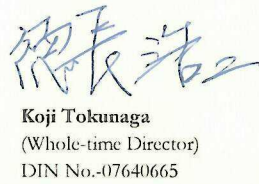 徳長浩二
Koji Tokunaga
(Whole-time Director)
DIN No.-07640665